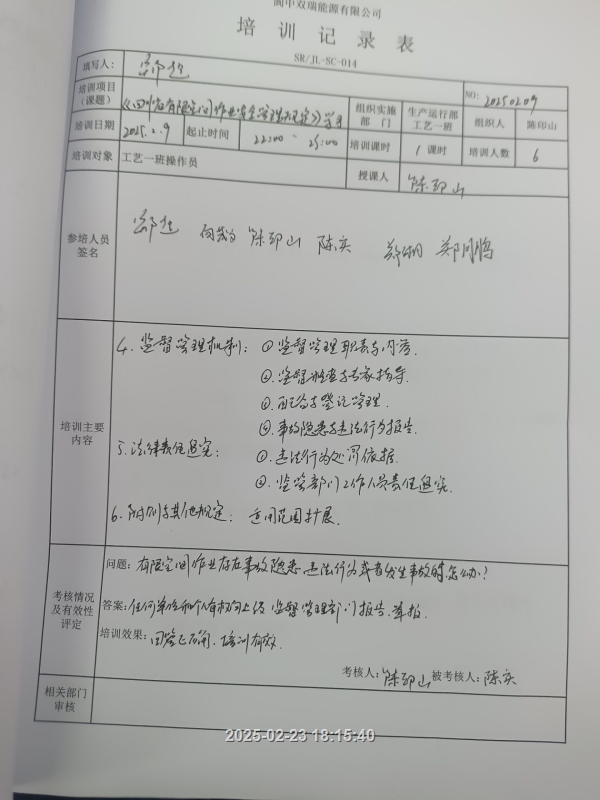 阆中双瑞能源有限公司
培训记录表
SR/JL-SC-014
填写人： NO: 20250209
培训项目（课题） 《四川省有限空间作业安全管理规定》学习 组织实施部门 生产运行部工艺一班 组织人 陈印山
培训日期 2025.2.9 起止时间 22:00 - 23:00 培训课时 1课时 培训人数 6
培训对象 工艺一班操作员 授课人 陈印山
参培人员签名 陈印山 陈实 郑月鹏
培训主要内容
4. 监督管理机制： ①监督管理职责与内容.
②.监督检查与专家指导.
③. 登记管理.
④.事故隐患与违法行为报告.
5.法律责任追究： ①.违法行为处罚依据.
②.监管部门工作人员责任追究.
6.附则与其他规定： 适用范围扩展.
考核情况及有效性评定
问题：有限空间作业存在事故隐患、违法行为或者发生事故时怎么办？
答案：任何单位和个人有权向上级监督管理部门报告、举报.
培训效果：回答正确、培训有效.
考核人：陈印山 被考核人：陈实
相关部门审核
2025-02-23 18:15:40